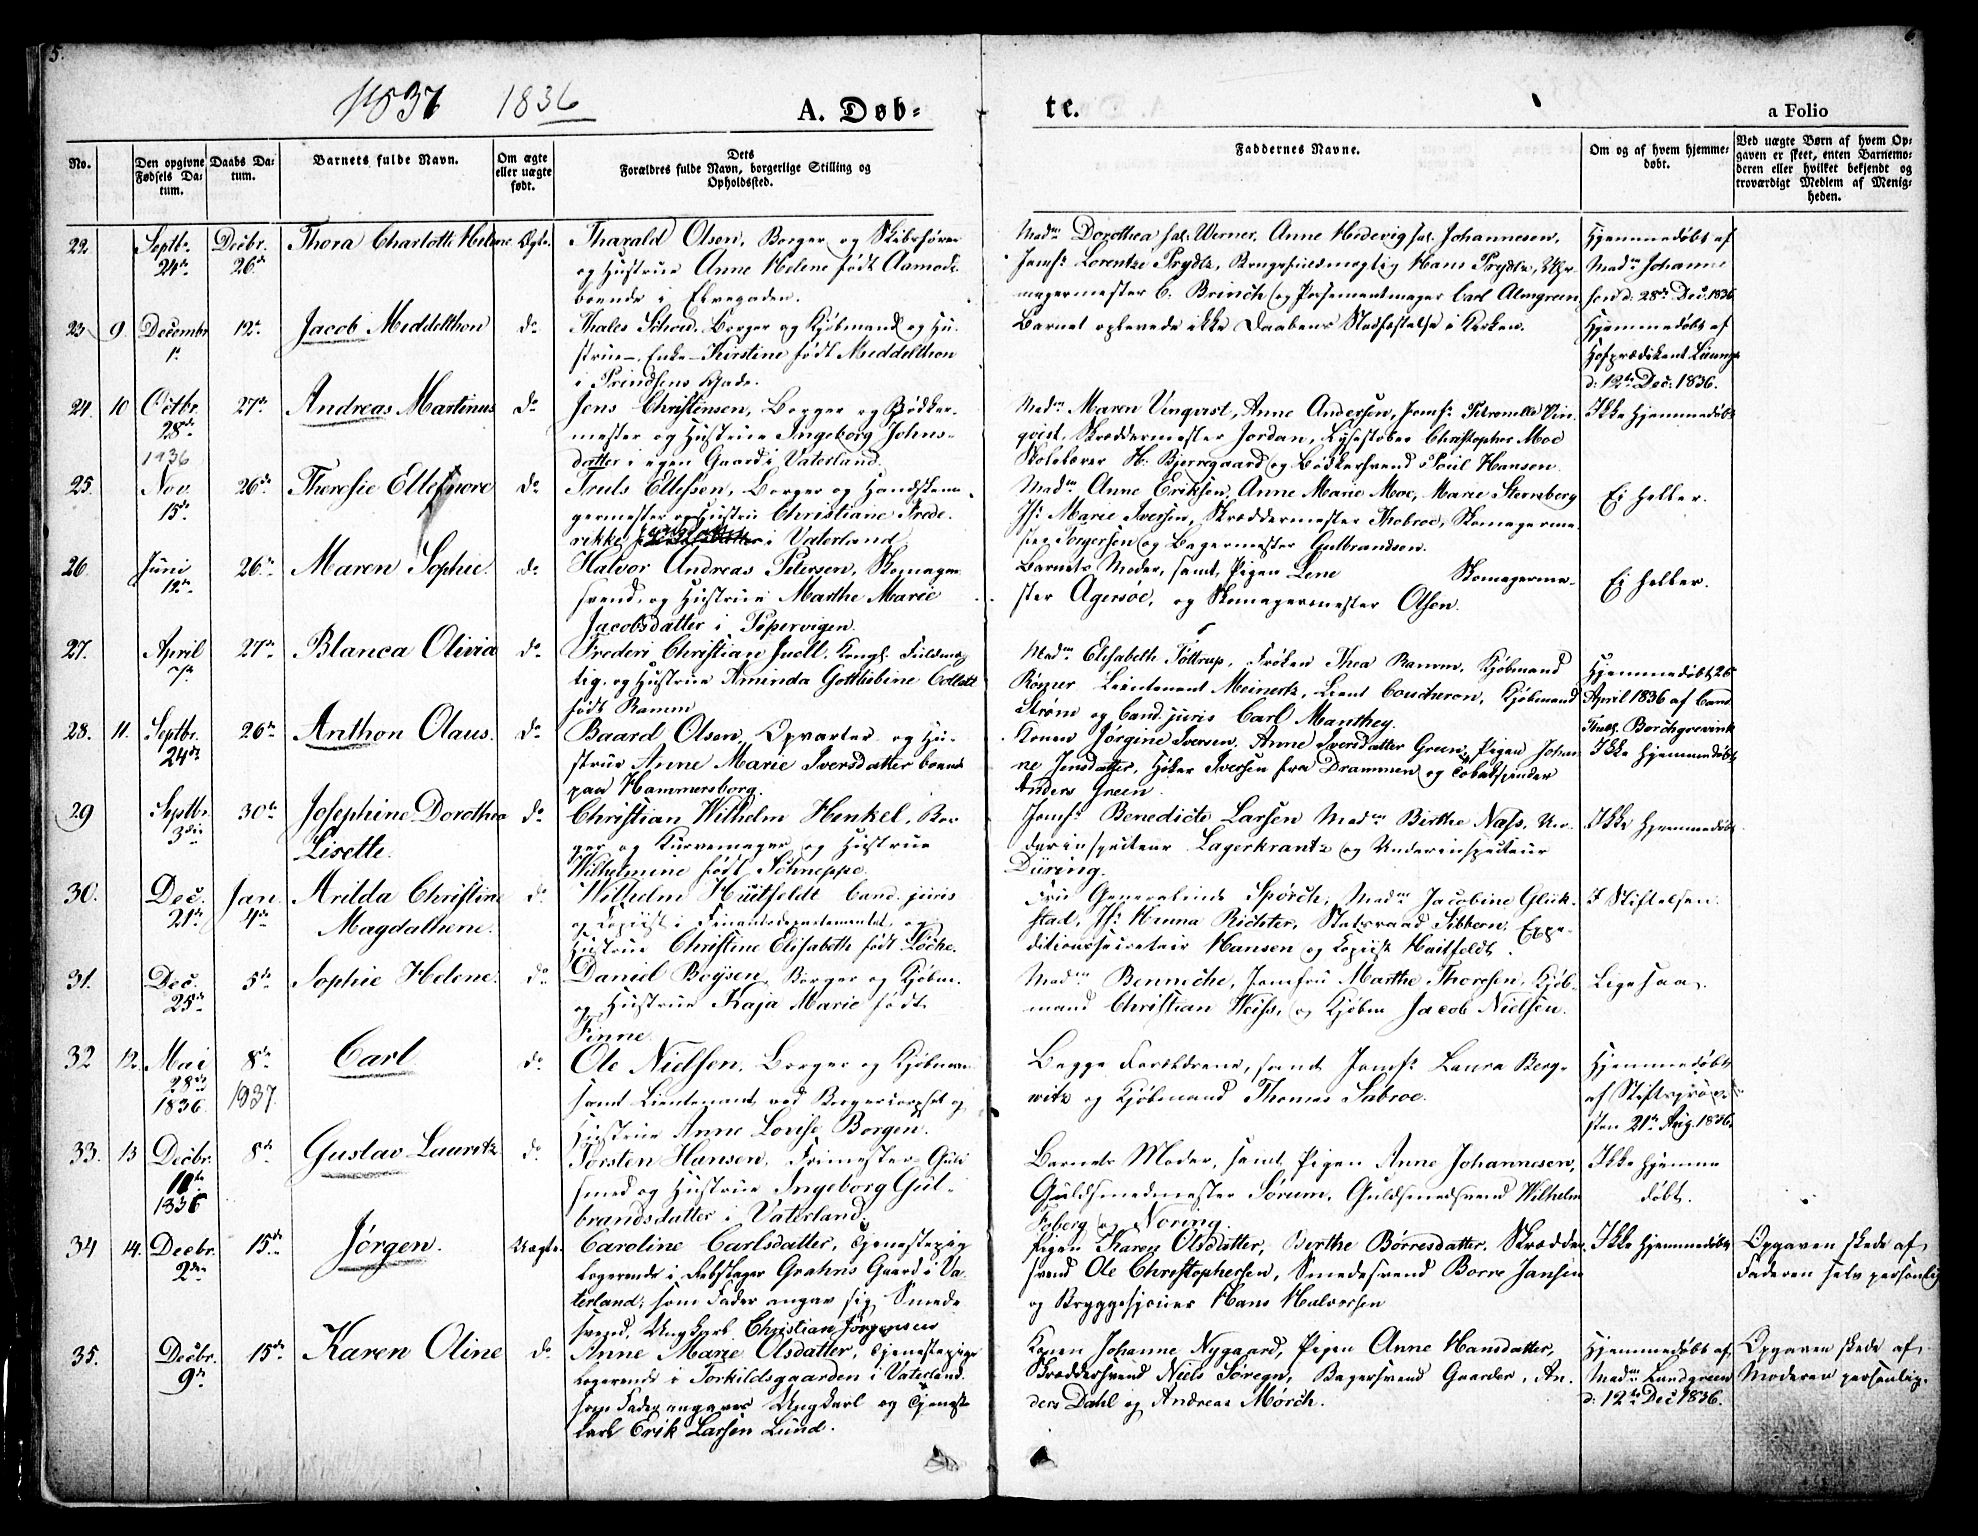 5.
6.
1837 1836
A. Døb-
te.
a Folio
No.
Den opgivne Fødsels Datum.
Daabs Datum.
Barnets fulde Navn.
Om ægte eller uægte født.
Dets
Forældres fulde Navn, borgerlige Stilling og Opholdssted.
Faddernes Navne.
Om og af hvem hjemmedøbt.
Ved uægte Børn af hvem Opgaven er skeet, enten Barnemoderen eller hvilket bekjendt og troværdigt Medlem af Menigheden.
22. Septbr. 24de Decbr. 26de Thora Charlotte Helene Ægte. Tharald Olsen, Borger og Skibsfører
og Hustrue Anne Helene født Aamodt
boende i Elvegaden.
Madm Dorothea sal: Werner, Anne Hedevig sal. Johannesen,
Jomfr Lorentze Prydtz, Brugsfuldmægtig Hans Prydtz,
magermester C. Brinch og Possementmager Carl Almgreen
Hjemmedøbt af
Madm Johanne
sen d: 28de Dec. 1836
23 9 Decembr 1te 12te Jacob Middelthon do Thales Schved. Borger og Kjøbmand og Hu-
strue Enke Kirstine født Middelthon
i Prindsens Gade.
Barnet oplevede ikke Daabens Stadfæstelse i Kirken.
Hjemmedøbt af
Hofprædikent
d: 12te Dec: 1836.
24. 10 Octbr. 28de 1836 27de Andreas Martinus do Jens Christensen, Borger og Bødker-
mester og Hustrue Ingeborg Johns-
datter i egen Gaard i Vaterland.
Madm Maren Vinqvist, Anne Andersen, Jomfr Petronelle Vin-
qvist, Skræddermester Jordan, Lysestøber Christopher Moe
Skolelærer H. Bjerregaard og Bødkersvend Poul Hansen.
Ikke Hjemmedøbt
25. Nov. 15de 26de Theresie Ellefnore do Truls Ellefsen, Borger og Handskema-
germester og Hustrue Christiane Frede-
rikke i Vaterland
Madm Anne Eriksen, Anne Marie Moe, Marie Sternberg
Jfr Marie Iversen, Skræddermester Thobroe, Skomagerme-
ster Torgersen og Bagermester Gulbrandsen.
Ej heller.
26. Juni 12te 26de Maren Sophie. do Halvor Andreas Petersen, Skomager
svend, og Hustrue Marthe Marie
Jacobsdatter i Pipervigen.
Barnets Moder, samt Pigen Lene Skomagerme-
ster Agersøe, og Skomagermester Olsen.
Ej heller.
27. April 7de 27de Blanca Olivia do Frederi Christian Juell, Kongl. Fuldmæg-
tig, og Hustrue Aminda Gottliebine Collett
født Ramm
Madm Elisabeth Tottrup, Frøken Thea Ramm, Kjøbmand
Rómer Lieutenant Meinertz, Lieut Coucheron, Kjøbmand
Strøm og Cand. juris Carl Manthey.
Hjemmedøbt 26
April 1836 af Cand
Theol. Borchgrevink
28. 11. Septbr. 24de 26de Anthon Olaus. do Baard Olsen, Opvarter og Hu-
strue Anne Marie Iversdatter boende
paa Hammersborg.
Konen Jørgine Iversen, Anne Iversdatter Green, Pigen Johan
ne Jensdatter, Høker Iversen fra Drammen og Tobakspinder
Anders Green.
Ikke Hjemmedøbt
29 Septbr. 3die 30te Josephine Dorothea
Lisette. do Christian Wilhelm Henkel, Bor
ger og Kurvemager og Hustrue
Wilhelmine født Schneppe.
Jomfr Benedicte Larsen Madm Birthe Næss, Un-
derinspecteur Lagerkrantz og Underinspecteur
Düring.
Ikke Hjemmedøbt
30. Dec. 21de Jan 4de Arilda Christine
Magdalhene. do Wilhelm Huitfeldt Cand. juris
og Copiist i Finantsdepartementet, og
Hustrue Christine Elisabeth født Løche.
Fru Generalinde Spørch, Madm Jacobine Glük-
stad, Jfr Hanna Richter, Statsraad Sibbern, Expe-
ditionssecretair Hansen og Kopiist Huitfeldt.
I Stiftelsen.
31. Dec. 25de 5te Sophie Helene. do Daniel Boysen, Borger og Kjøbm.
og Hustrue Kaja Marie født
Finne.
Madm Benneche, Jomfru Marthe Thoresen, Kjøb-
mand Christian Weiss, og Kjøbm Jacob Nielsen.
Ligesaa.
32 12. Mai 28de 1836 8de 1837. Carl do Ole Nielsen, Borger og Kjøbman
samt Lieutenant ved Borgercorpset og
Hustrue Anne Lovise Borgen.
Begge Forældrene, samt Jomfr Laura Berg-
witz og Kjøbmand Thomas Sabroe.
Hjemmedøbt
af Stiftsprov-
sten 21de Aug. 1836.
33. 13 Decbr. 10de 1836 8de Gustav Lauritz do Torsten Hansen, Frimester Guld
smed og Hustrue Ingeborg Gul-
brandsdatter i Vaterland.
Barnets Moder, samt Pigen Anne Johannesen,
Guldsmedmester Sørum, Guldsmedsvend Wilhelm
Foberg og Noring.
Ikke Hjemme
døbt.
34 14. Decbr. 2den 15de Jørgen. Uægte. Caroline Carlsdatter, Tjenestepige
logerende i Rebslager Grahns Gaard i Va-
terland; som Fader angav sig Smede
svend, Ungkarl Christian Jørgensen
Pigen Karen Olsdatter, Birthe Børresdatter, Skrædder
svend Ole Christophersen, Smedesvend Borre Jansen
og Bryggesjouer Hans Halvorsen
Ikke Hjemmedøbt
Opgaven skede af
Faderen selv personlig
35. Decbr. 9de 15de Karen Oline do Anne Marie Olsdatter, Tjenestepige
logerende i Torkildsgaarden i Vaterland.
som Fader angaves Ungkarl og Tjeneste
karl Erik Larsen Lund.
Konen Johanne Nygaard, Pigen Anne Hansdatter,
Skræddersvend Niels Søregn, Bagersvend Gaarder, An-
ders Dahl og Andreas Mørch.
Hjemmedøbt af
Madm Lundgreen
d: 12te Dec 1836.
Opgaven skede af
Moderen personlig.